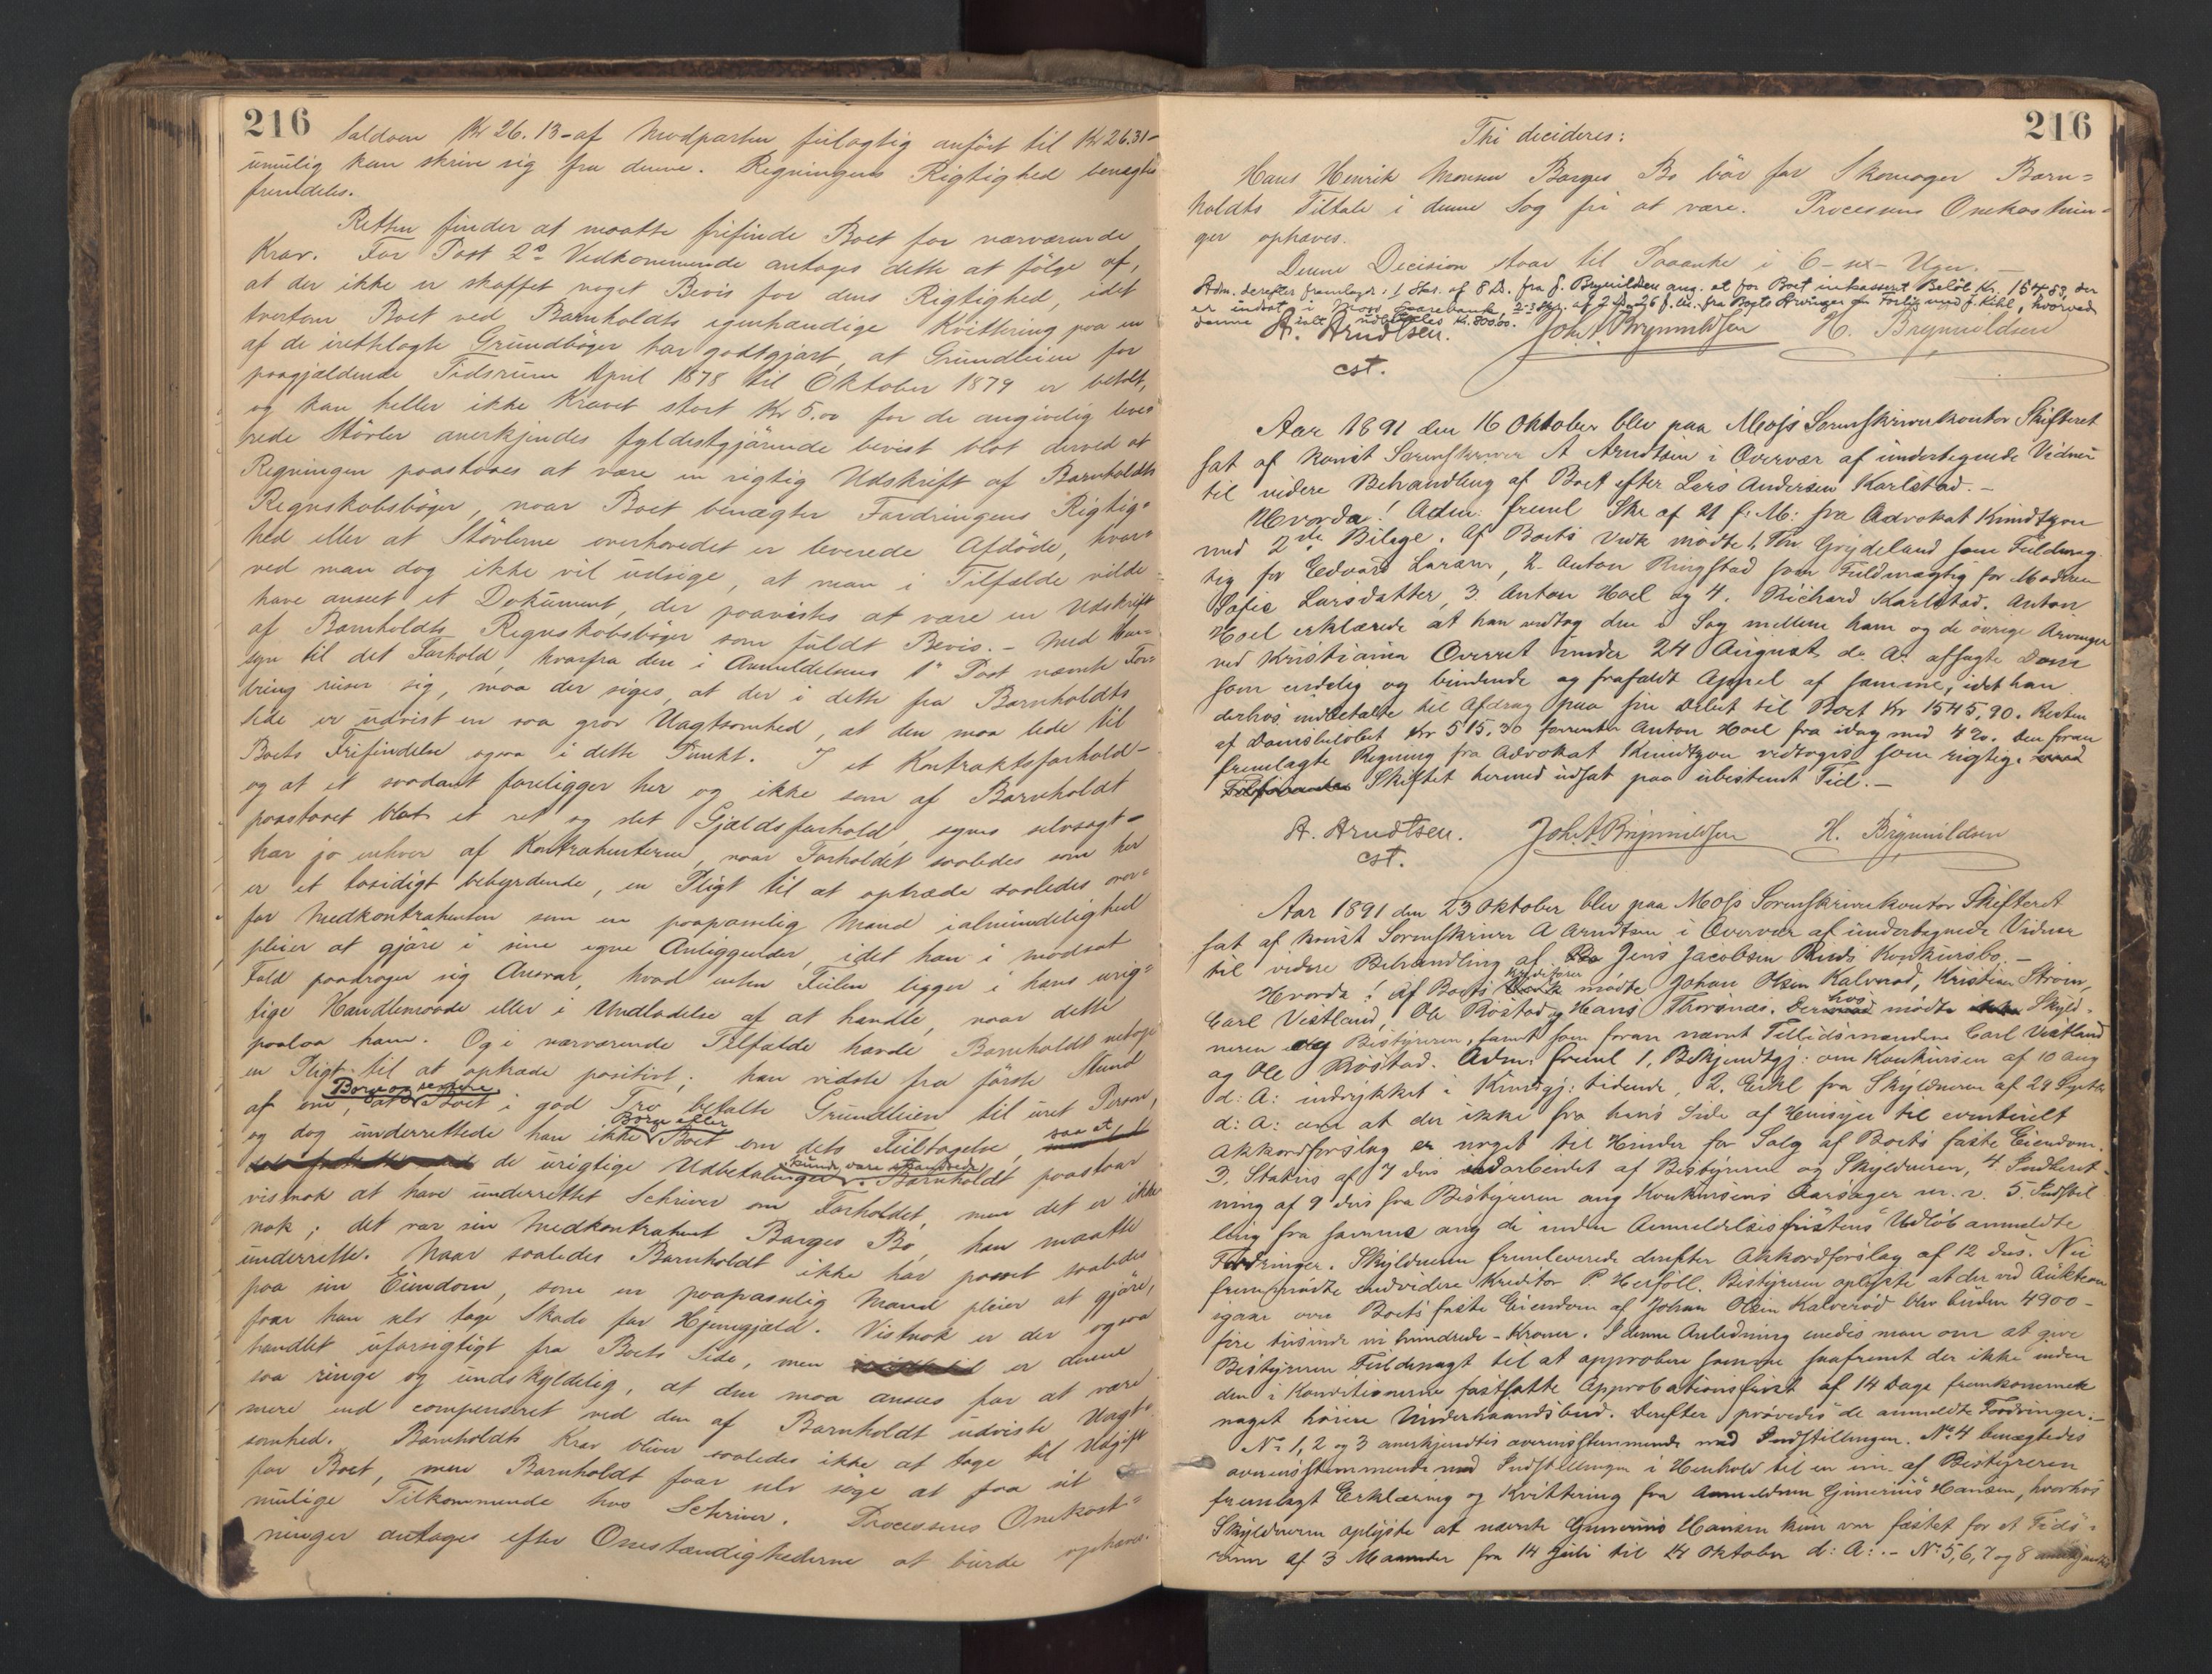 216
Saldoen Kr 26.13 - af Modparten feilagtig anført til Kr 26.31 -
umulig kan skrive sig fra denne. Regningens Rigtighed benægtes
fremdeles.
Retten finder at maatte frifinde Boet for nærværende
Krav. For Post 2s Vedkommende antages dette at følge af,
at der ikke er skaffet noget Bevis for dens Rigtighed, idet
tvertom Boet ved Barnholdts egenhændige Kvittering paa en
af de irettelagte Grundbøger har godtgjort, at Grundleien for
paagjældende Tidsrum April 1878 til Oktober 1879 er betalt,
og kan heller ikke Kravet stort Kr 5.00 for de angivelig leve-
rede Støvler anerkjendes fyldestgjørende bevist blot derved at
Regningen paastaaes at være en rigtig Udskrift af Barnholdts
Regnskabsbøger, naar Boet benægter Fordringens Rigtig=
hed eller at Støvlerne overhovedet er leverede Afdøde, hvor=
ved man dog ikke vil udsige, at man i Tilfælde vilde
have anseet et Dokument, der paavistes at være en Udskrift
af Barnholdts Regnskabsbøger som fuldt Bevis. - Med Hen=
syn til det Forhold, hvorfra den i Anmeldelsens 1ste Post nævnte For=
dring reiser sig, maa der siges, at der i dette fra Barnholdts
Side er udvist en saa grov Uagtsomhed, at den maa lede til
Boets Frifindelse ogsaa i dette Punkt. I et Kontraktsforhold -
og at et saadant foreligger her og ikke som af Barnholdt
paastaaet blot et ret og slet Gjældsforhold, synes selvsagt -
har jo enhver af Kontrahenterne, naar Forholdet saaledes som her
er et tosidigt bebyrdende, en Pligt til at optræde saaledes over=
for Medkontrahenten som en paapasselig Mand i almindelighed
pleier at gjøre i sine egne Anliggender, idet han i modsat
Fald paadrager sig Ansvar, hvad enten Feilen ligger i hans urig=
tige Handlemaade eller i Undladelse af at handle, naar dette
paalaa ham. Og i nærværende Tilfælde havde Barnholdt netop
en Pligt til at optræde positivt; han vidste fra første Stund
Borge og senere
af om, at Boet i god Tro betalte Grundleien til uret Person,
Borge eller
og dog underrettede han ikke Boet om dets Feiltagelse, saa at
kunde være standsede
de urigtige Udbetalinger. Barnholdt paastaar
vistnok at have underrettet Schriver om Forholdet, men det er ikke
nok; det var sin Medkontrahent Borges Bo, han maatte
underrette. Naar saaledes Barnholdt ikke har passet saaledes
paa sin Eiendom, som en paapasselig Mand pleier at gjøre,
faar han selv tage Skade for Hjemgjæld. Vistnok er der ogsaa
handlet uforsigtigt fra Boets Side, men er denne
saa ringe og undskyldelig, at den maa ansees for at være
mere end compenseret ved den af Barnholdt udviste Uagt=
somhed. Barnholdts Krav bliver saaledes ikke at tage til Udgift
for Boet, men Barnholdt faar selv søge at faa sit
mulige Tilkommende hos Schriver. Processens Omkost=
ninger antages efter Omstændighederne at burde ophæves.
216
Thi decideres:
Hans Henrik Monsen Borges Bo bør for Skomager Barn=
holdts Tiltale i denne Sag fri at være. Processens Omkostnin=
ger ophæves.
Denne Decision staar til Paaanke i 6 - sex - Uger. -
Adm. derefter fremlagde, 1 Skr. af 8 D. fra J. Brynildsen ang. at for Boet inkasseret Beløb Kr. 154.82, der
er indsat i Moss Sparebank, 2-3 Skr. af 2 og 26 f. M. fra Boets Arvinger om Forlig med J. Kihl, hvorved
denne ialt udbetales Kr. 800.00.
A. Arndtsen. Joh. A. Brynnildsen H. Brynnildsen
cst.
Aar 1891 den 16 Oktober blev paa Moss Sorenskriverkontor Skifteret
sat af konst Sorenskriver A Arndtsen i Overvær af undertegnede Vidner
til videre Behandling af Boet efter Lars Andersen Karlstad. -
Hvorda! Adm. freml Skr af 21 f. M. fra Advokat Knudtzon
med 2de Bilage. Af Boets Vedk mødte 1, Thv Grydeland som Fuldmæg
tig for Edvard Larsen, 2. Anton Ringstad som Fuldmægtig for Moderen
Sofie Larsdatter, 3. Anton Hoel og 4. Richard Karlstad. Anton
Hoel erklærede at han vedtog den i Sag mellem ham og de øvrige Arvinger
ved Kristiania Overret under 24 August d. A. afsagte Dom
som endelig og bindende og frafaldt Appel af samme, idet han
derhos indbetalte til Afdrag paa sin Debet til Boet Kr 1545,90. Resten
af Domsbeløbet Kr 515,30 forrenter Anton Hoel fra idag med 4%. Den foran
fremlagte Regning fra Advokat Knudtzon vedtoges som rigtig.
Skiftet hermed udsat paa ubestemt Tid. -
A. Arndtsen. Joh. A. Brynnildsen H. Brynnildsen
cst.
Aar 1891 den 23 Oktober blev paa Moss Sorenskriverkontor Skifteret
sat af konst Sorenskriver A Arndtsen i Overvær af undertegnede Vidner
til videre Behandling af Jens Jacobsen Ruds Konkursbo. -
Kreditorer
Hvorda! Af Boets mødte Johan Olsen Kalverød, Kristian Strøm,
hos
Carl Vestland, Ole Røstad og Hans Thorsnæs. Der mødte Skyld-
neren og Bestyreren, samt som foran nævnt Tillidsmændene Carl Vestland
og Ole Røstad. Adm. freml 1, Bekjendtgj: om Konkursen af 10 Aug
d: A: indrykket i Kundgj: tidende, 2. Erkl fra Skyldneren af 29 Septbr
d: A: om at der ikke fra hans Side af Hensyn til eventuelt
Akkordforslag er noget til Hinder for Salg af Boets faste Eiendom.
3, Status af 7 ds udarbeidet af Bestyreren og Skyldneren, 4. Indberet-
ning af 9 ds fra Bestyreren ang Konkursens Aarsager m. v. 5. Indstil
ling fra samme ang de inden Anmeldelsesfristens Udløb anmeldte
Fordringer. Skyldneren fremleverede derefter Akkordforslag af 12 ds. Nu
fremmødte endvidere Kreditor P Herføll. Bestyreren oplyste at der ved Auktion
igaar over Boets faste Eiendom af Johan Olsen Kalverød blev buden 4900 -
fire tusinde ni hundrede - Kroner. I denne Anledning enedes man om at give
Bestyreren Fuldmagt til at approbere samme saafremt der ikke inden
den i Konditionerne fastsatte Approbationsfrist af 14 Dage fremkommer
noget høiere Underhaandsbud. Derefter prøvedes de anmeldte Fordringer. -
No 1, 2 og 3 anerkjendtes overensstemmende med Indstillingen. No 4 benægtedes
overensstemmende med Indstillingen i Henhold til en nu af Bestyreren
fremlagt Erklæring og Kvittering fra Anmelderen Gunerius Hansen, hvorhos
Skyldneren oplyste at nævnte Gunerius Hansen kun var fæstet for et Tids-
rum af 3 Maaneder fra 14 Juli til 14 Oktober d: A: - No 5, 6, 7 og 8 anerkjendtes